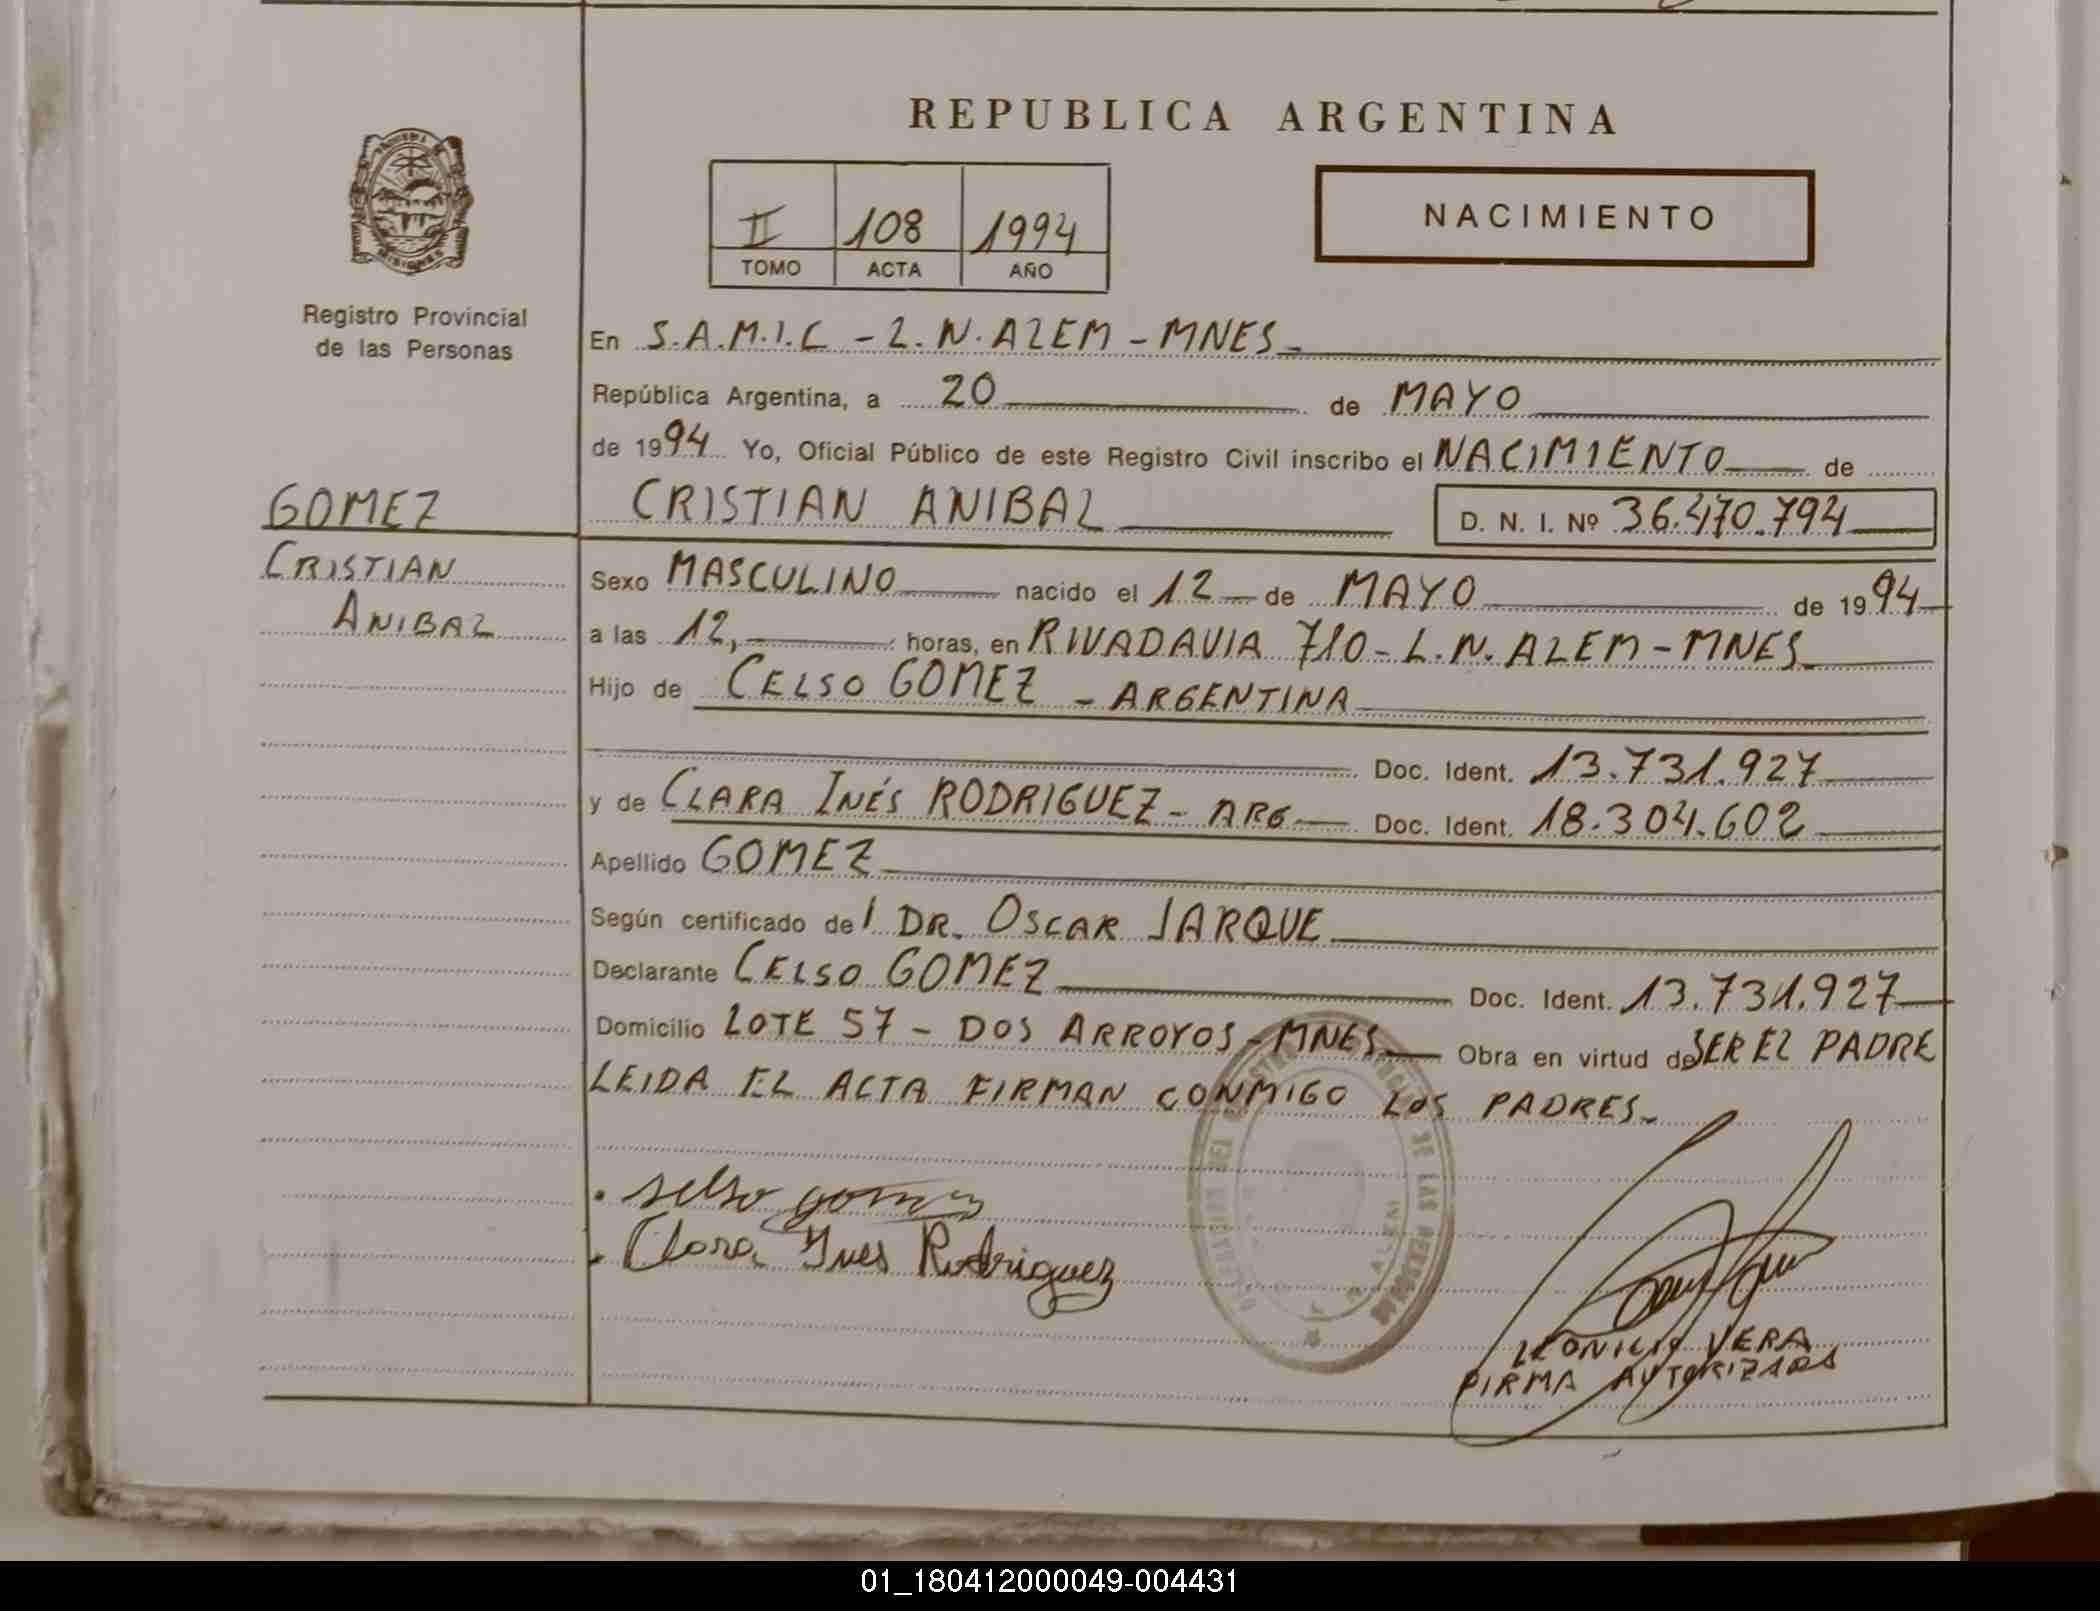 REPUBLICA ARGENTINA
II 108 1994
TOMO ACTA AÑO
NACIMIENTO
MISIONES
Registro Provincial
de las Personas
En S.A.M.I.C - L.N. ALEM - MNES
República Argentina, a 20 de MAYO
de 1994 Yo, Oficial Público de este Registro Civil inscribo el NACIMIENTO de
GOMEZ
CRISTIAN ANIBAL
D. N. I. Nº 36.470.794
CRISTIAN
ANIBAL
Sexo MASCULINO nacido el 12 de MAYO de 1994
a las 12, horas, en RIVADAVIA 710 - L.N. ALEM - MNES
Hijo de CELSO GOMEZ - ARGENTINA
Doc. Ident. 13.731.927
y de CLARA INÉS RODRIGUEZ - ARG Doc. Ident. 18.304.602
Apellido GOMEZ
Según certificado del DR. OSCAR JARQUE
Declarante CELSO GOMEZ Doc. Ident. 13.731.927
Domicilio LOTE 57 - DOS ARROYOS - MNES Obra en virtud de SER EL PADRE
LEIDA EL ACTA FIRMAN CONMIGO LOS PADRES
selso gomez
Clara Ynes Rodriguez
DE LAS PERSONAS
ALEM
VERA
FIRMA AUTORIZADA
01_180412000049-004431